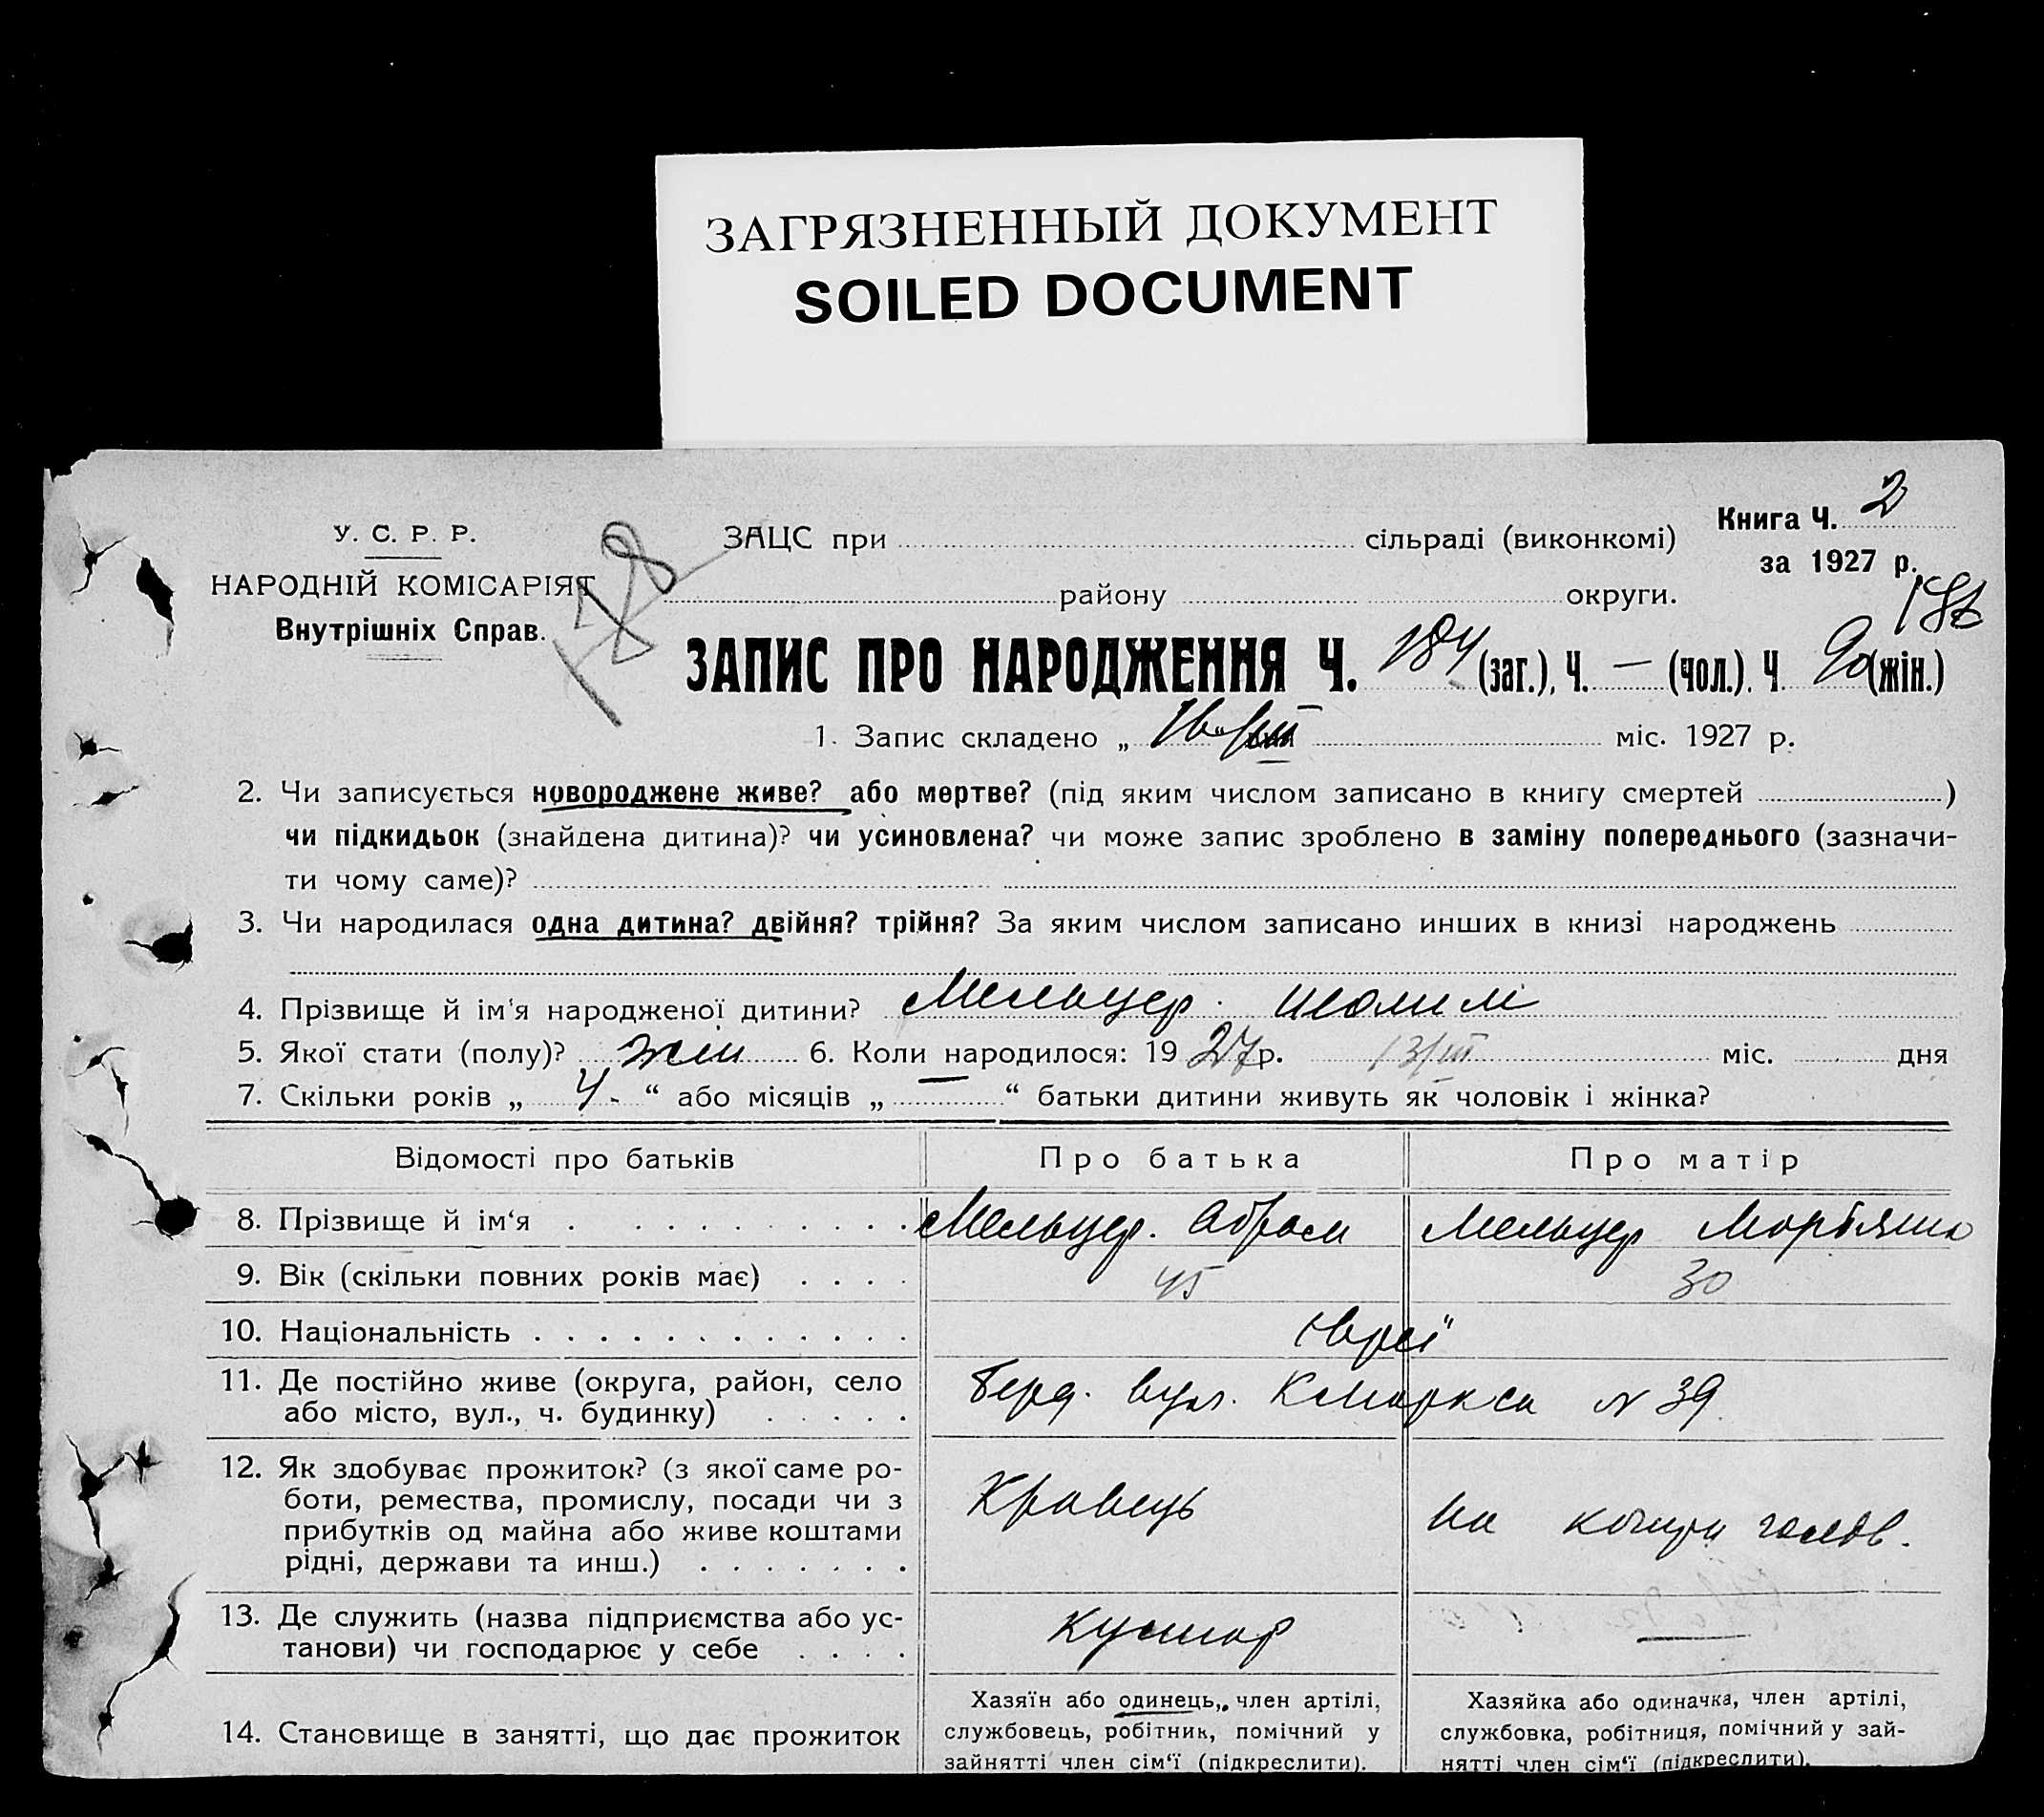 ЗАГРЯЗНЕННЫЙ ДОКУМЕНТ
SOILED DOCUMENT
Книга Ч. 2
за 1927 р.
У. С. Р. Р.
НАРОДНІЙ КОМІСАРІЯТ
Внутрішніх Справ.
ЗАЦС при сільраді (виконкомі)
району округи.
ЗАПИС ПРО НАРОДЖЕННЯ Ч. 184 (заг.), Ч. — (чол.). Ч (жін.)
1. Запис складено „ міс. 1927 р.
2. Чи записується новороджене живе? або мертве? (під яким числом записано в книгу смертей )
чи підкидьок (знайдена дитина)? чи усиновлена? чи може запис зроблено в заміну попереднього (зазначи-
ти чому саме)?
3. Чи народилася одна дитина? двійня? трійня? За яким числом записано инших в книзі народжень
4. Прізвище й ім'я народженої дитини? Мельцер
5. Якої стати (полу)? жін 6. Коли народилося: 1927р. 13/III міс. дня
7. Скільки років „ 4. “ або місяців „ — “ батьки дитини живуть як чоловік і жінка?
Відомості про батьків
Про батька
Про матір
8. Прізвище й ім'я Мельцер. Абрам Мельцер
9. Вік (скільки повних років має) 45 30
10. Національність Євреї
11. Де постійно живе (округа, район, село
або місто, вул., ч. будинку)
Берд. вул. К Маркса № 39
12. Як здобуває прожиток? (з якої саме ро-
боти, ремества, промислу, посади чи з
прибутків од майна або живе коштами
рідні, держави та инш.)
Кравець
на кошти
13. Де служить (назва підприємства або ус-
танови) чи господарює у себе
Кустар
—
14. Становище в занятті, що дає прожиток
Хазяїн або одинець, член артілі,
службовець, робітник, помічний у
зайнятті член сім'ї (підкреслити).
Хазяйка або одиначка, член артілі,
службовка, робітниця, помічний у зай-
нятті член сім'ї (підкреслити).